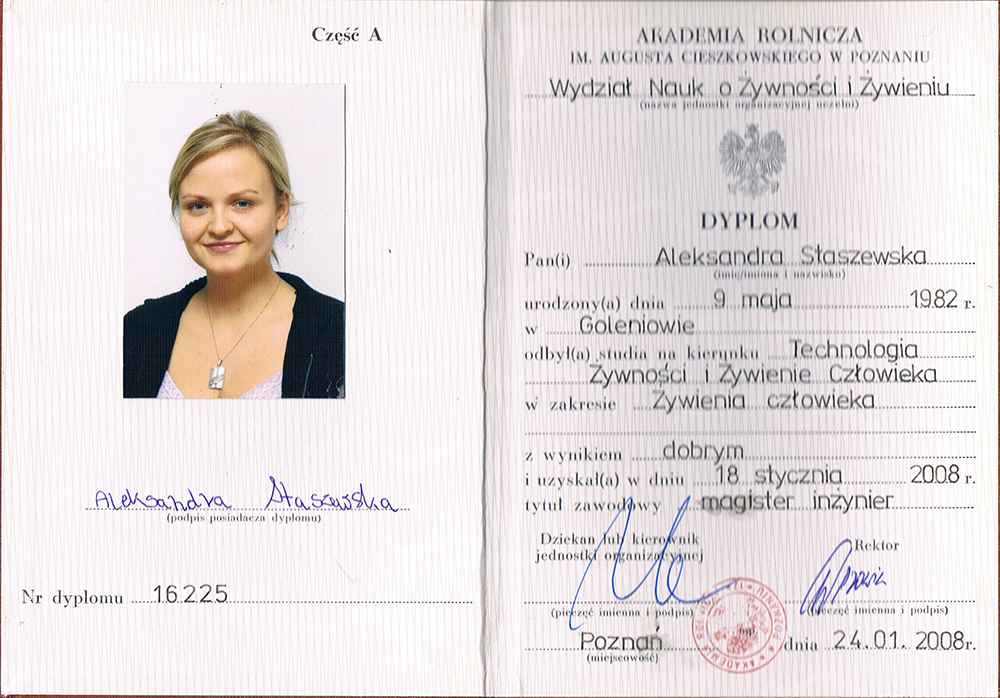 Część A
Aleksandra Staszewska
(podpis posiadacza dyplomu)
Nr dyplomu 16.225
AKADEMIA ROLNICZA
IM. AUGUSTA CIESZKOWSKIEGO W POZNANIU
Wydział Nauk o Żywności i Żywieniu
(nazwa jednostki organizacyjnej uczelni)
DYPLOM
Pan(i) Aleksandra Staszewska
(imię/imiona i nazwisko)
urodzony(a) dnia 9 maja 1982 r.
w Goleniowie
odbył(a) studia na kierunku Technologia
Żywności i Żywienie Człowieka
w zakresie Żywienia człowieka
z wynikiem dobrym
i uzyskał(a) w dniu 18 stycznia 2008 r.
tytuł zawodowy magister inżynier
Dziekan lub kierownik
jednostki organizacyjnej
Rektor
(pieczęć imienna i podpis)
(pieczęć imienna i podpis)
Poznań dnia 24.01.2008r.
(miejscowość)